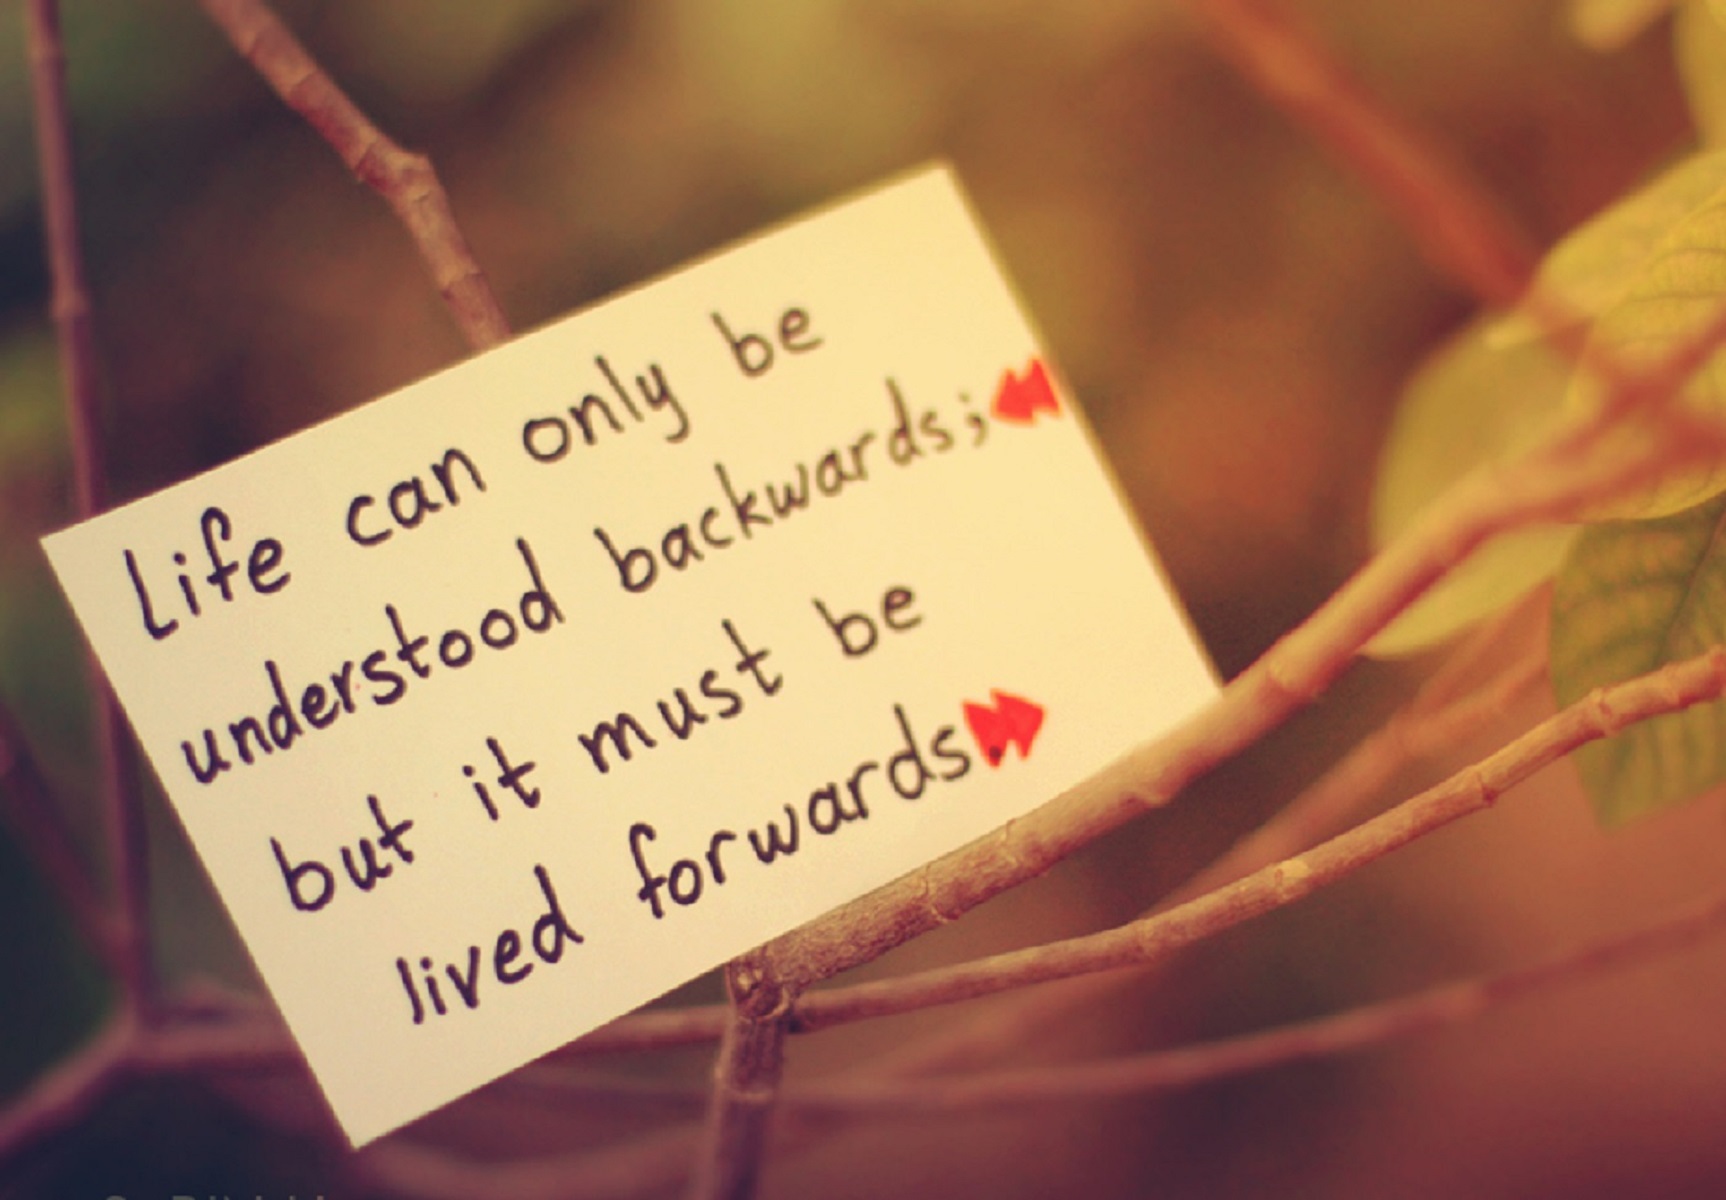 Life can only be
understood backwards;
but it must be
lived forwards.